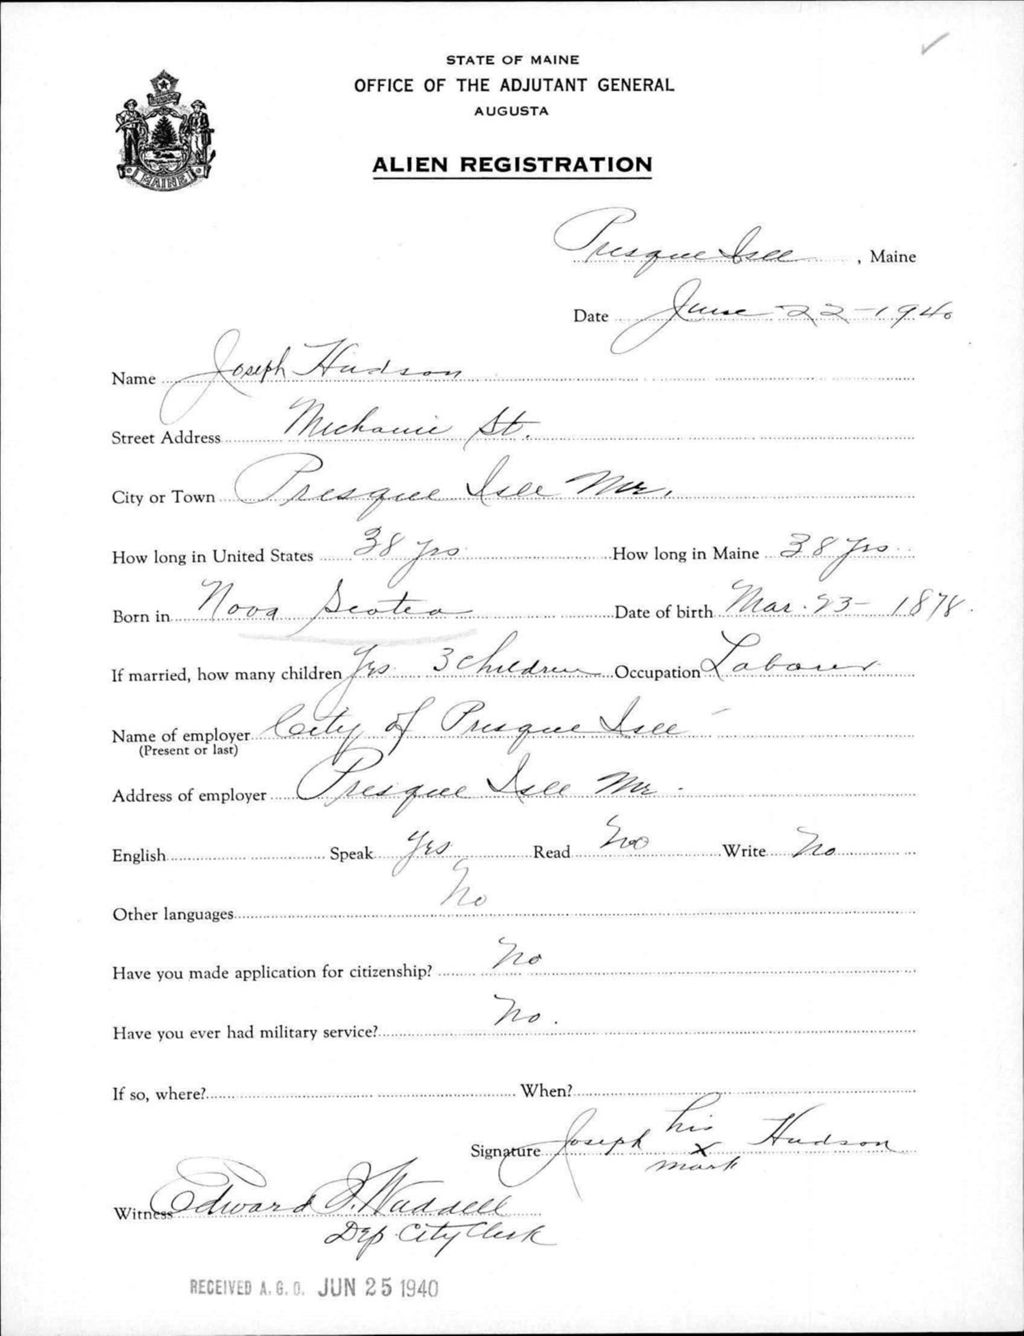 STATE OF MAINE
OFFICE OF THE ADJUTANT GENERAL
AUGUSTA
MAINE
ALIEN REGISTRATION
Presque Isle, Maine
Date June 22-1940
Name Joseph Hudson
Street Address Mechanic St.
City or Town Presque Isle Me.
How long in United States 38 yrs How long in Maine 38 yrs
Born in Nova Scotea Date of birth Mar. 23-1878.
If married, how many children Yes 3 children Occupation Laborer
Name of employer City of Presque Isle
(Present or last)
Address of employer Presque Isle Me.
English Speak Yes Read No Write No
Other languages No
Have you made application for citizenship? No
Have you ever had military service? No.
If so, where? When?
Signature Joseph his x mark Hudson
Witness Edward J. Waddell
Dep. City Clerk
RECEIVED A.G.O. JUN 25 1940